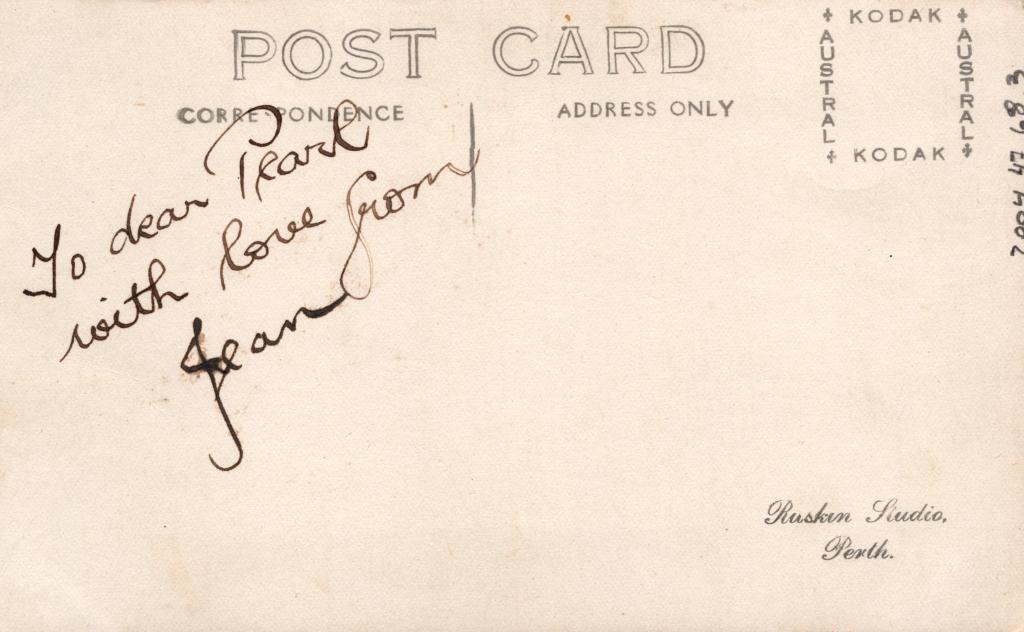 POST CARD
CORRESPONDENCE
ADDRESS ONLY
KODAK
AUSTRAL
AUSTRAL
KODAK
To dear Pearl
with love from
Jean
Ruskin Studio,
Perth.